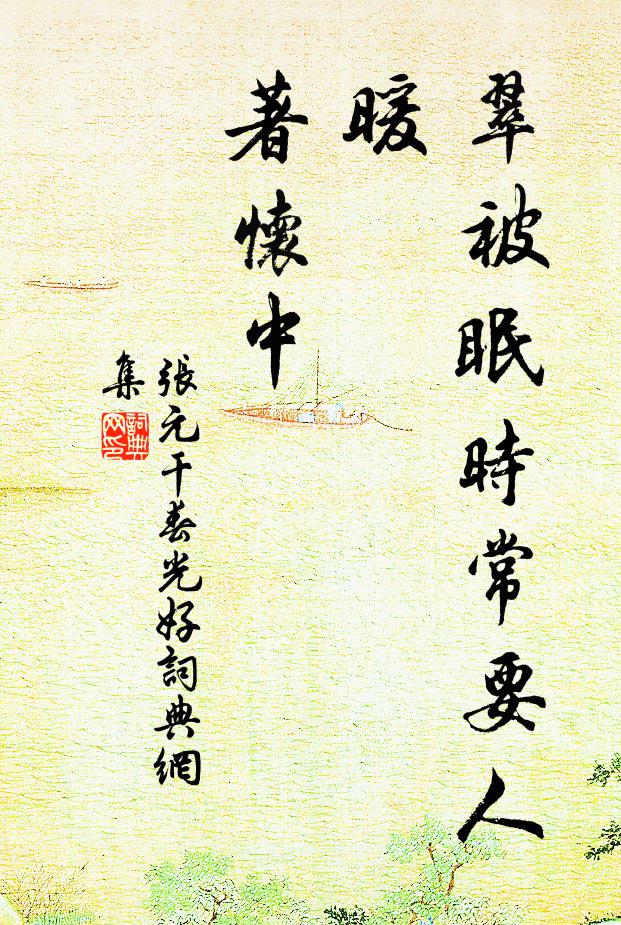 翠被眠時常要人
暖
著懷中
張元干春光好詞典網
集
詞典
网印